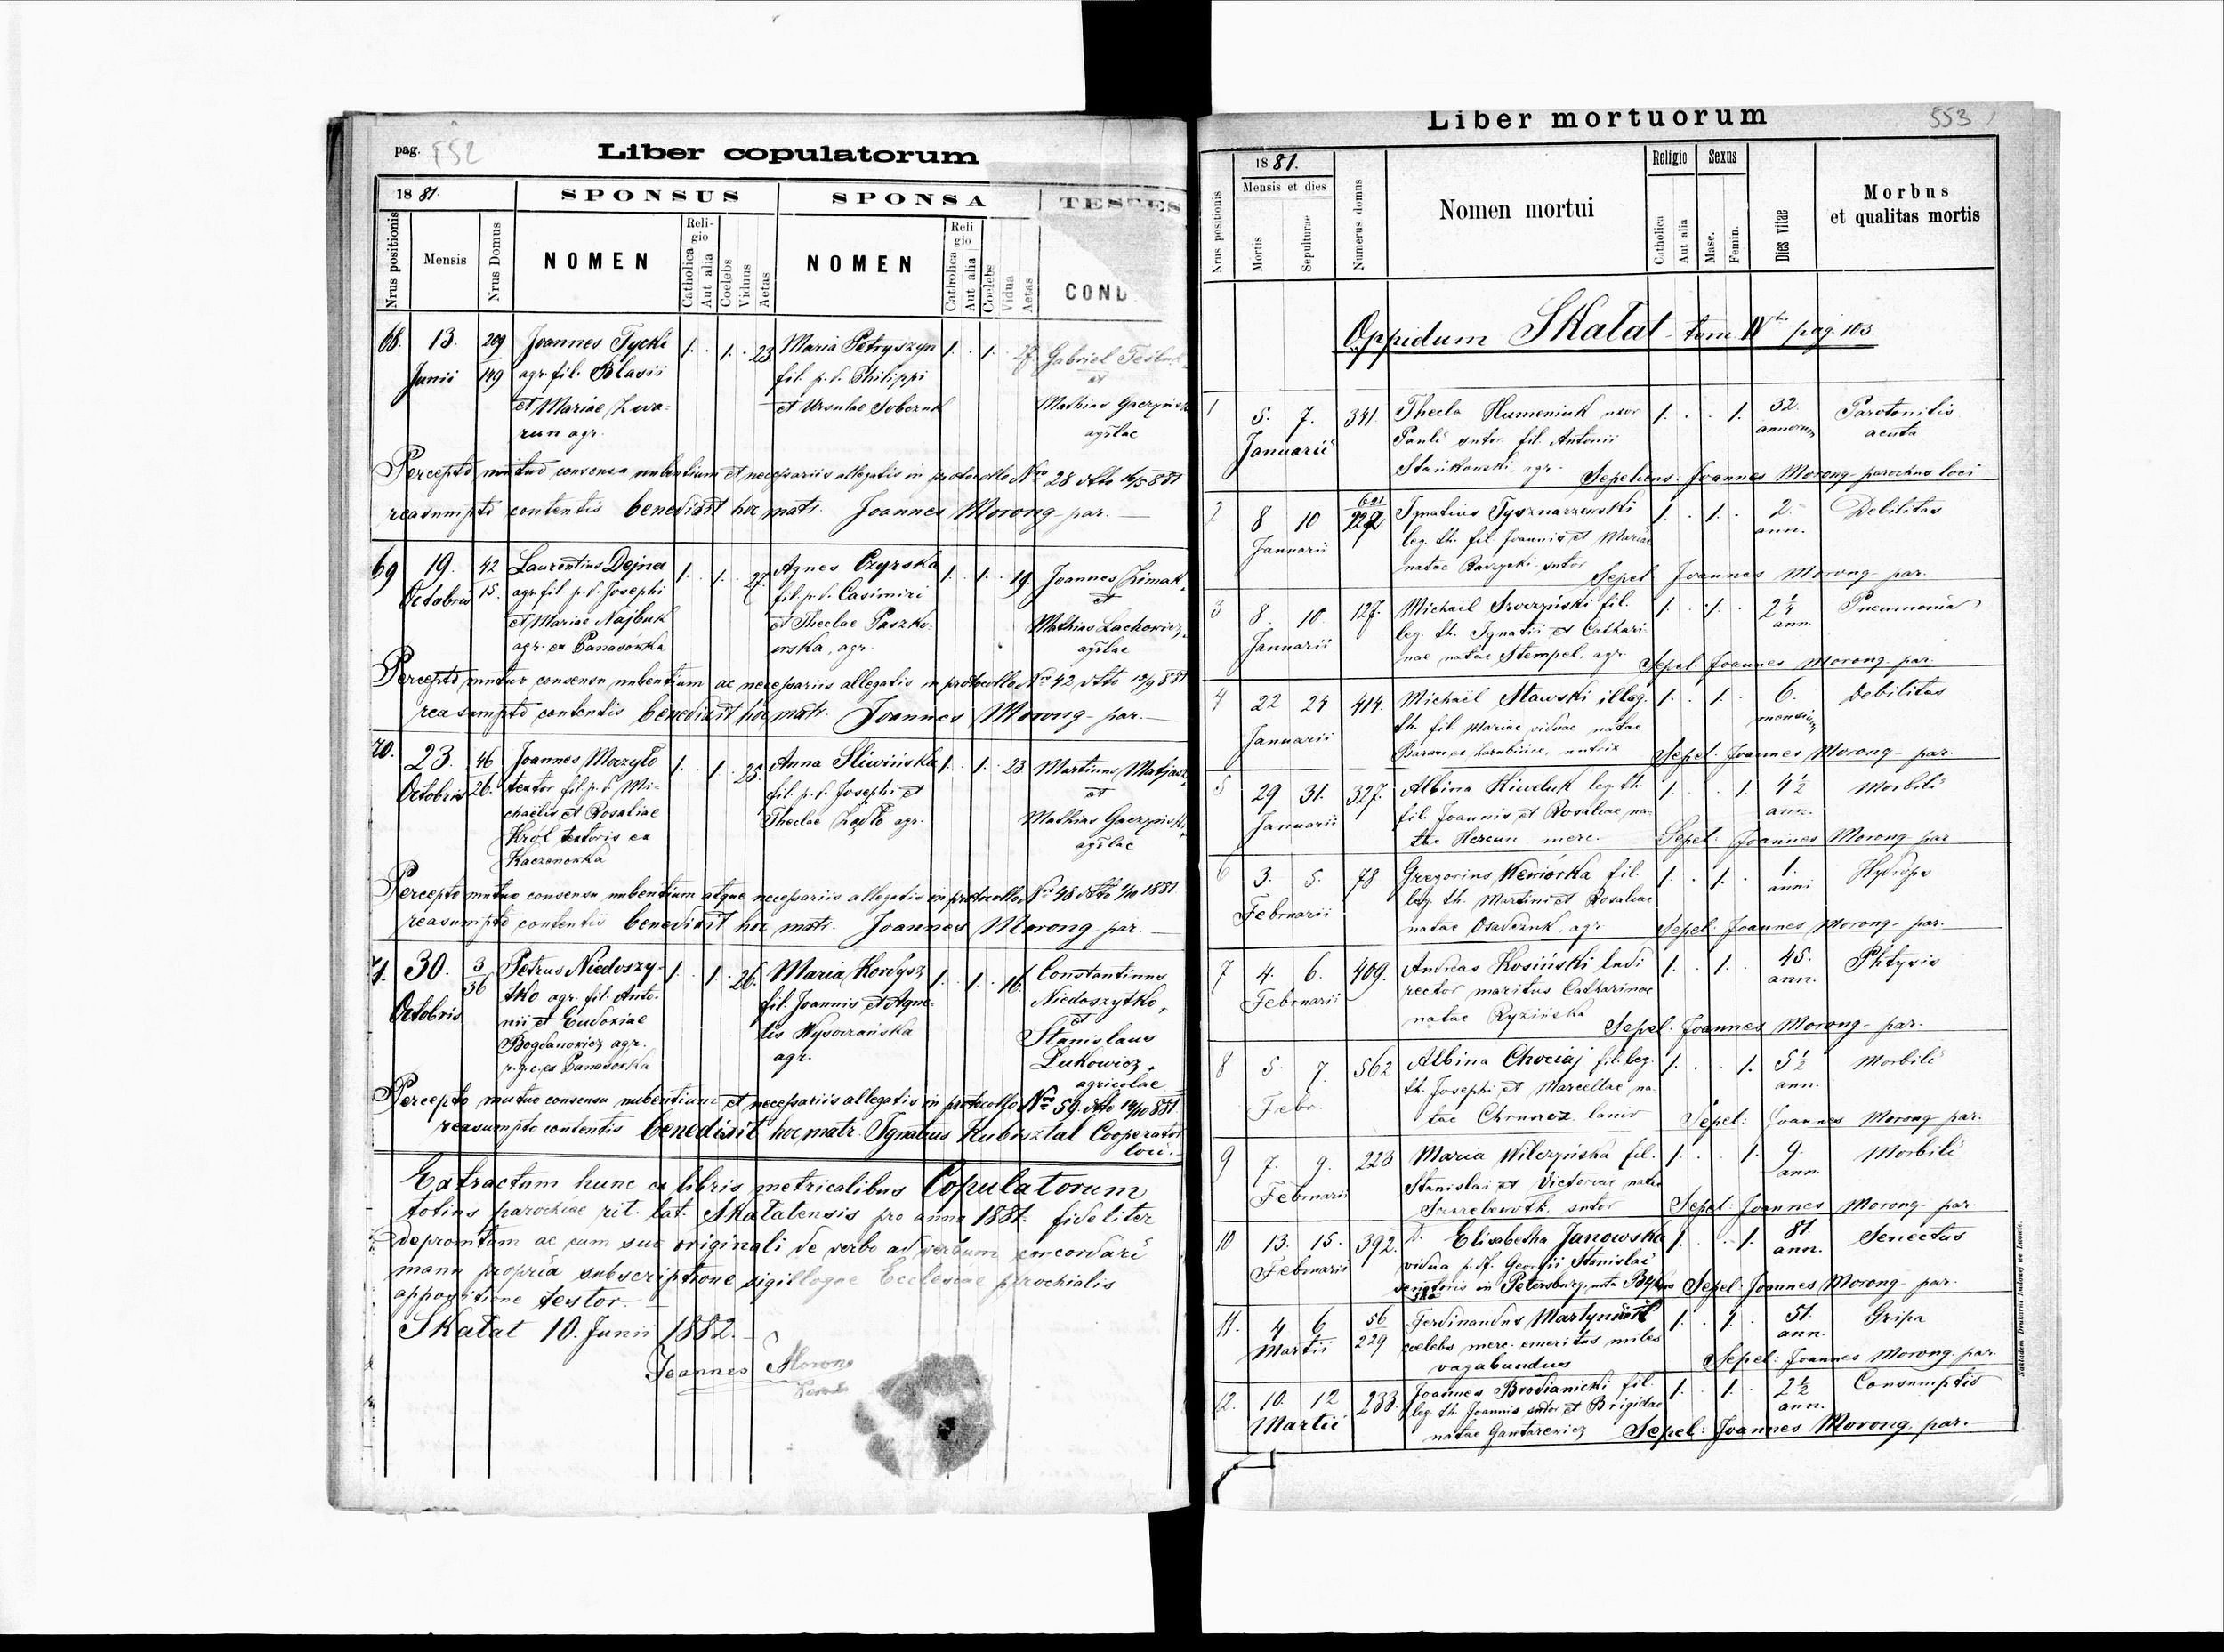 pag. 552
Liber copulatorum
1881.
SPONSUS
SPONSA
TESTES
Nrus positionis
Mensis
Nrus Domus
NOMEN
Religio
Catholica
Aut alia
Coelebs
Viduus
Aetas
NOMEN
Religio
Catholica
Aut alia
Coelebs
Vidua
Aetas
COND
68. 13. 209 Joannes Tycki 1. . 1. . 23 Maria Petryszyn 1. . 1. . 27. Gabriel
Junii 149 agr. fil. Blasii fil. p. d. Philippi et
et Mariae et Ursulae Mathias
run agr. agilae
Percepto mutuo consensu nubentium et necessariis allegatis in protocollo Nro 28 dtto 16/5 881
reasumpto contentis benedixit hoc matr. Joannes Morong par.
69 19. 42 Laurentius Dejna 1. . 1. . 27. Agnes Czyrska 1. . 1. . 19. Joannes Zimak
Octobris 15. agr. fil. p. d. Josephi fil. p. d. Casimiri et
et Mariae Najbuk et Theclae Paszko= Mathias Lachowicz,
agr. ex Panasówka wska, agr. agilae
Percepto mutuo consensu nubentium ac necessariis allegatis in protocollo Nro 42 dtto 12/9 881
reasumpto contentis benedixit hoc matr. Joannes Morong par.
70. 23. 46 Joannes Mazyło 1. . 1. 25. Anna Sliwińska 1. . 1. . 23 Martinus
Octobris 26. textor fil. p. d. Mi= fil. p. d. Josephi et et
chaelis et Rosaliae Theclae agr. Mathias
Król textoris ex agilae
Kaczanowka
Percepto mutuo consensu nubentium atque necessariis allegatis in protocollo Nro 48 dtto 4/10 1881
reasumpto contentis benedixit hoc matr. Joannes Morong par.
71. 30. 3 Petrus Niedoszy- 1. . 1. . 26. Maria Kordysz 1. . 1. . 16. Constantinus
Octobris 36 tko agr. fil. Anto- fil. Joannis et Agne- Niedoszytko,
nii et Eudoxiae tis Wysoczańska et
Bogdanowicz agr. agr. Stanislaus
r. g. c. ex Panasowka Lukowicz,
agricolae
Percepto mutuo consensu nubentium et necessariis allegatis in protocollo Nro 59. dtto 14/10 881
reasumpto contentis benedixit hoc matr. Ignatius Kubisztal Cooperator
loci.
Extractum hunc ex libris metricalibus Copulatorum
totius parochiae rit. lat. Skałatensis pro anno 1881. fideliter
depromtam ac cum suo originali de verbo ad verbum concordari
manu propria subscriptione sigilloque Ecclesiae parochialis
appositione testor.
Skałat 10. Junii 1882.
Joannes Morong
Liber mortuorum
553
1881.
Nrus positionis
Mensis et dies
Mortis
Sepulturae
Numerus domus
Nomen mortui
Religio
Catholica
Aut alia
Sexus
Masc.
Femin.
Dies vitae
Morbus
et qualitas mortis
Oppidum Skałat tom. IV pag. 103.
1 5. 7. 341. Thecla Humeniuk uxor 1. . . 1. 32. Parotonitis
Januarii Pauli sutor. fil. Antonii annorum acuta
Stańkowski, agr. Sepeliens: Joannes Morong parochus loci
2 8 10 621 227. Ignatius Tysznarzewski 1. . 1. . 2. Debilitas
Januarii leg. th. fil. Joannis et Mariae ann.
natae sutor Sepel. Joannes Morong par.
3 8. 10 127. Michael fil. 1. . 1. . 2 1/4 Pneumonia
Januarii leg. th. Ignatii et Cathari- ann.
nae natae Stempel, agr. Sepel: Joannes Morong par.
4 22 24 414. Michael Stawski illeg. 1. . 1. . 6. Debilitas
Januarii th. fil. Mariae viduae natae mensium
Baran ex nutrix Sepel: Joannes Morong par.
5 29 31. 327. Albina leg. th. 1. . . 1. 4 1/2 Morbili
Januarii fil. Joannis et Rosaliae na- ann.
tae Hercun merc. Sepel: Joannes Morong par
6 3. 5. 78 Gregorius Wewiórka fil. 1. . 1. . 1. Hydrops
Februarii leg. th. Martini et Rosaliae anni
natae Osadczuk, agr Sepel: Joannes Morong par.
7 4. 6. 409. Andreas Kosiński ludi 1. . 1. . 45. Phtysis
Februarii rector maritus Catharinae ann.
natae Ryzińska Sepel: Joannes Morong par.
8 5. 7. 562 Albina Chociaj fil. leg. 1. . . 1. 5 1/2 Morbili
Febr. th. Josephi et Marcellae na- ann.
tae lanio Sepel: Joannes Morong par.
9 7. 9. 223 Maria Wilczyńska fil. 1. . . 1. 9. Morbili
Februarii Stanislai et Victoriae natae ann.
sutor Sepel: Joannes Morong par.
10 13. 15. 392. Elisabetha Janowska 1. . . 1. 81. Senectus
Februarii vidua p. df. Georgii Stanislai ann.
senatoris in Petersburg, nata Sepel: Joannes Morong par.
11. 4 6 56 Ferdinandus 1. . 1. . 51. Gripa
Martii 229 coelebs merc. emeritus miles ann.
vagabundus Sepel: Joannes Morong par.
12. 10. 12 233. Joannes Brodianicki fil. 1. . 1. . 2 1/2 Consumptio
Martii leg. th. Joannis sutor et Brigidae ann.
natae Gantarewicz Sepel: Joannes Morong par.